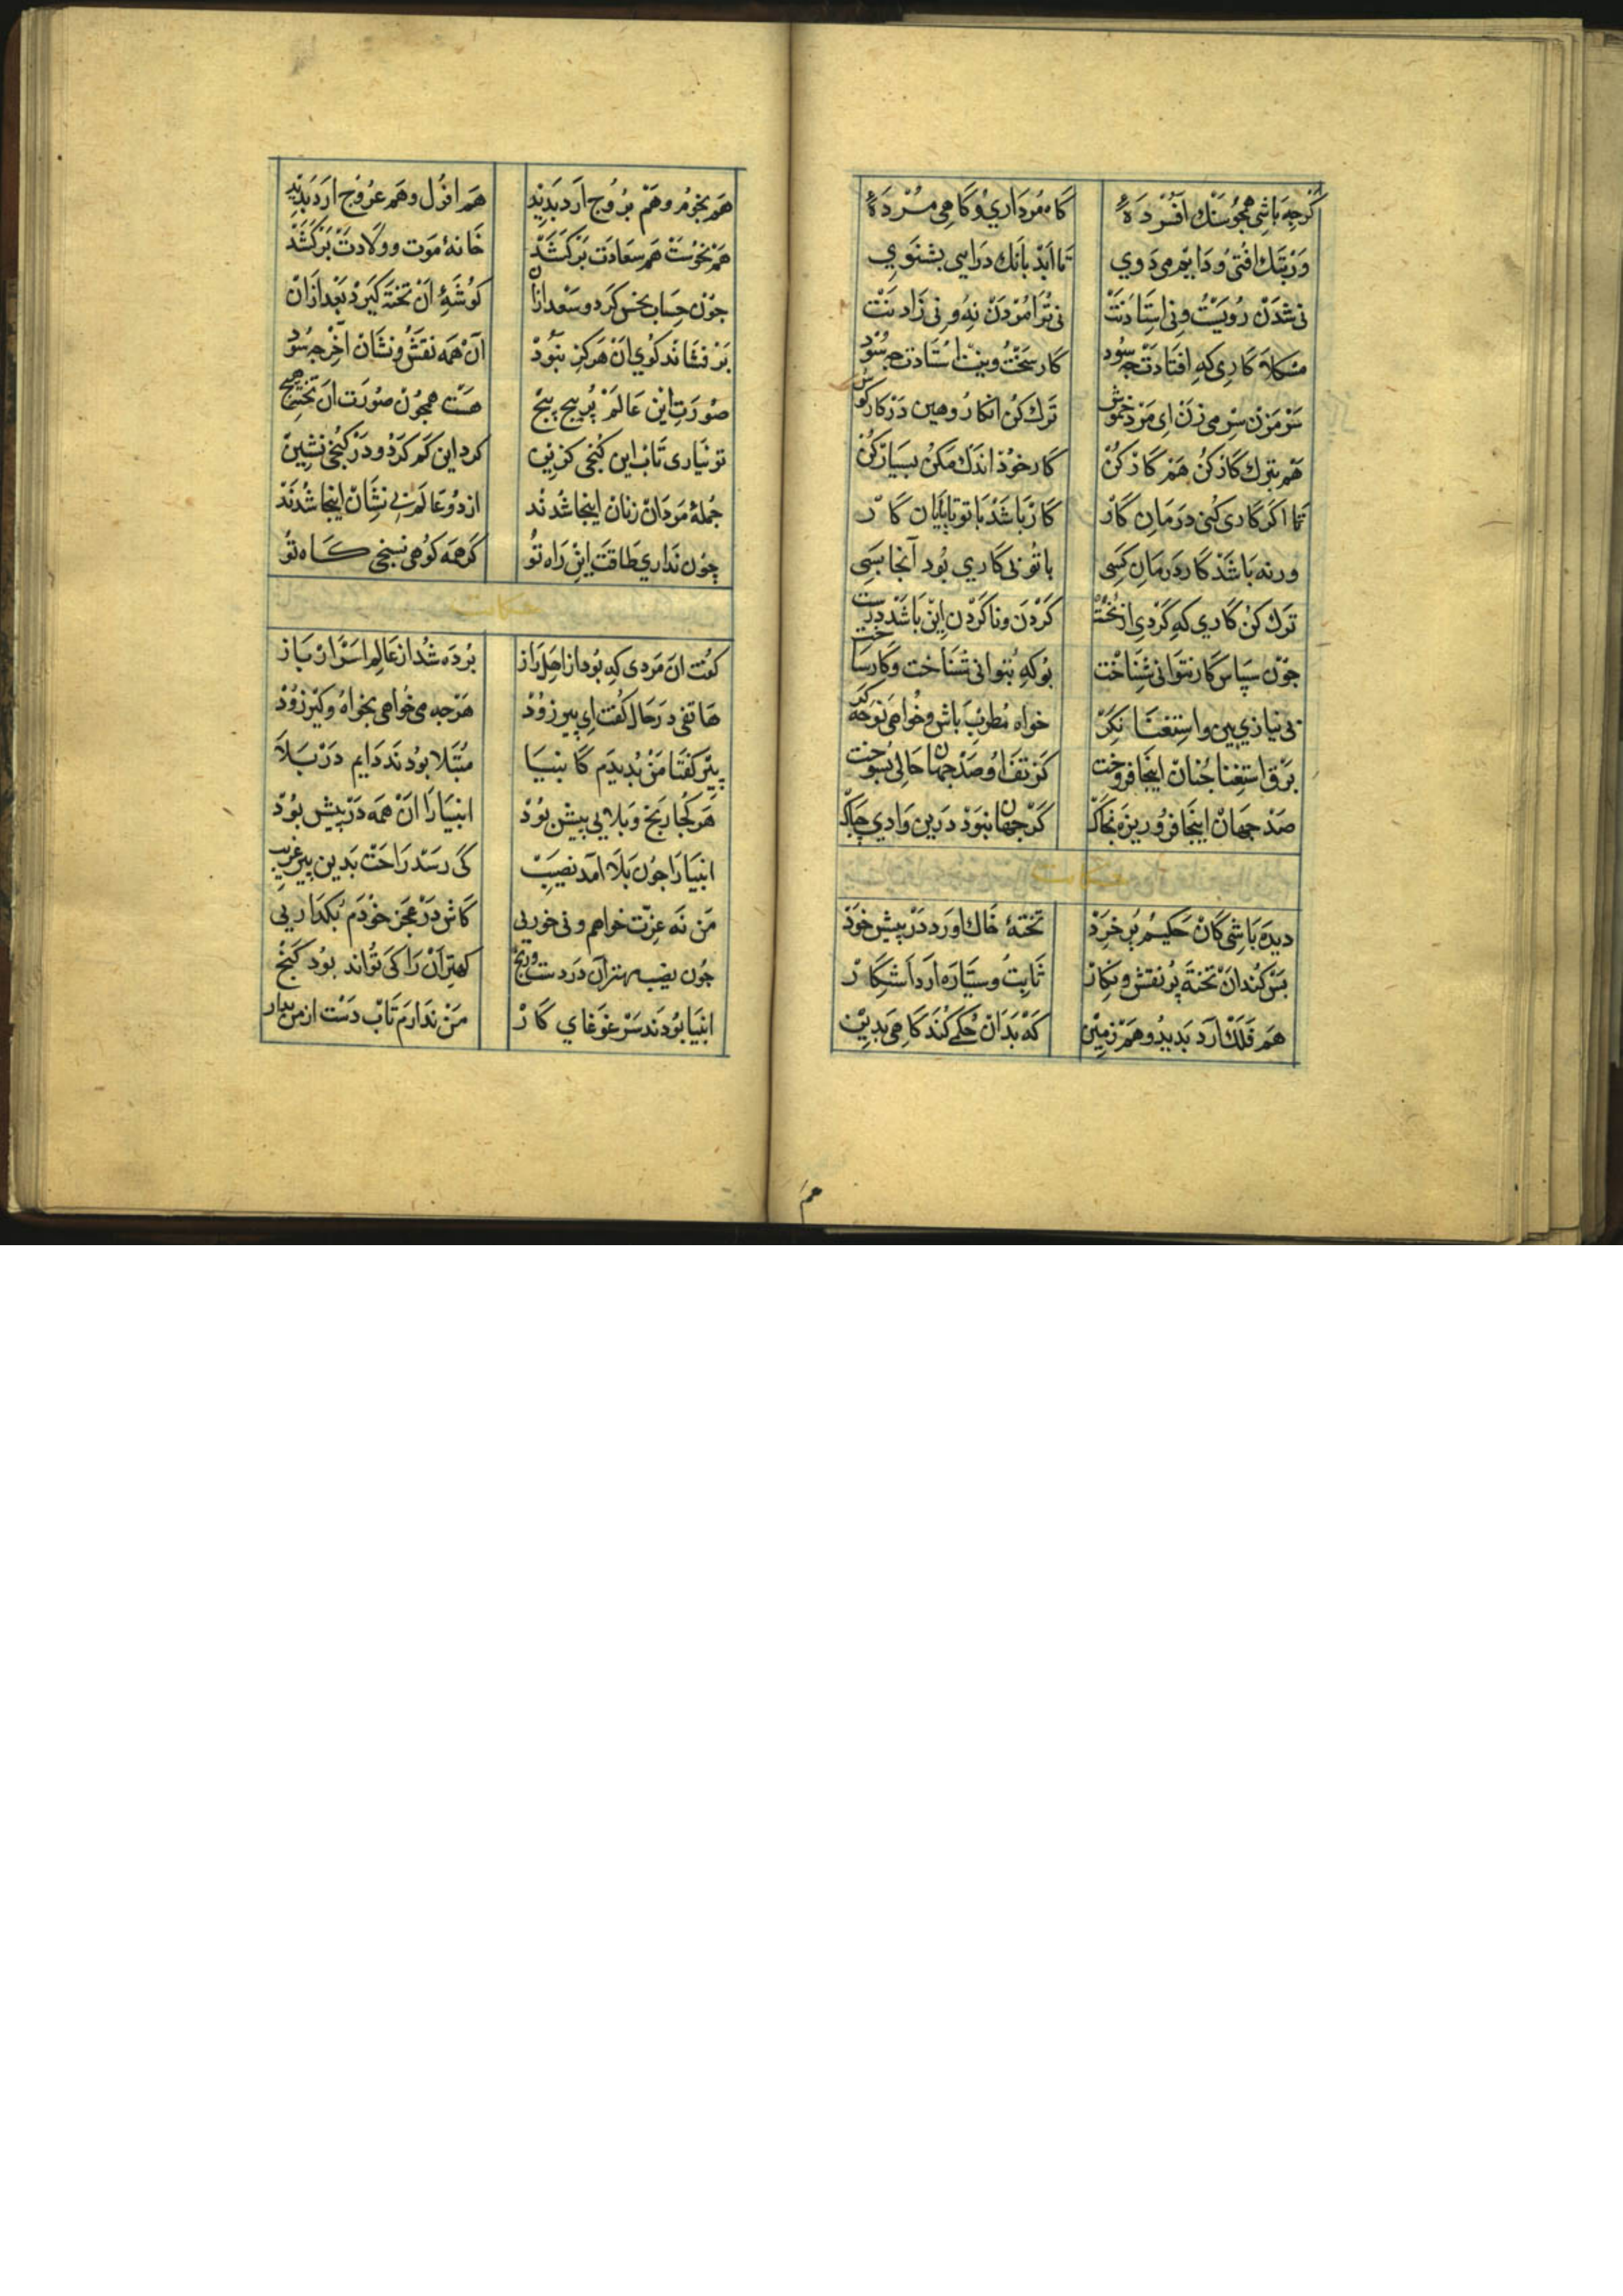 کرچه باشی همچو سنک افسرده‌ء کاه مرداری و کاهی مرده‌ء
ور بتک افتی و دایم می دوی تا ابد بانک درایی بشنوی
نی شدن رویت و نی استادنت نی ترا مردن نه و نی زادنت
مشکلا کاری که افتادت جه سود کار سخت و استادت جه سود
سر مزن سر می زن ای مرد خموش ترک کن انکار و هین در کار کوش
هم بترک کار کن هم کار کن کار خوذ اندک مکن بسیار کن
تا اکر کاری کنی درمان کار کار باشد با تو تا بایان کار
ورنه باشذ کار درمان کسی با تو نی کاری بود آنجا بسی
ترک کن کاری که کردی از نخست کردن و ناکردن این باشد درست
جون سپاس کار نتوانی شناخت بوکه بتوانی شناخت و کار ساخت
نی نیازی بین و استغنا نکر خواه مطرب باش و خواهی نوحه کر
برق استغنا جنان اینجا فروخت کز تف او صد جهان حالی بسوخت
صد جهان اینجا فرو ریزه بخاک کر جهان نبود درین وادی جه باک
حکایت
دیده باشی کان حکیم پر خرد تختهٔ خاک اورد در پیش خوذ
بس کند ان تخته پر نقش و نکار ثابت و سیاره ارد اشکار
هم فلک ارد بدید و هم زمین که بدان حکمی کند کاهی بدین
هم
هم نجوم و هم بروج ارد بدید هم افول و هم عروج ارد بدید
هم نحوست هم سعادت برکشد خانهٔ موت و ولادت برکشد
جون حساب نحس کرد و سعد ازان کوشهٔ ان تخته کیرد بعد ازان
بر فشاند کوی ان هرکز نبود آن همه نقش و نشان آخر جه سود
صورت این عالم پر پیج پیج هست همجون صورت ان تخته هیج
تو نیاری تاب این کنجی کزین کرد این کم کرد و در کنجی نشین
جملهٔ مردان زنان اینجا شدند از دو عالم بی نشان اینجا شدند
چون نداری طاقت این راه تو کر همه کوهی نسنجی کاه تو
حکایت
کفت ان مردی که بود از اهل راز برده شد از عالم اسرار باز
هاتفی در حال کفت ای پیر زود هرجه می خواهی بخواه و کیر زود
پیر کفتا من بدیدم کانبیا مبتلا بودند دایم در بلا
هر کجا رنج و بلایی بیش بود انبیا را ان همه در پیش بود
انبیا را جون بلا امد نصیب کی رسد راحت بدین پیر غریب
من نه عزت خواهم و نی خوریی کاش در عجز خودم بکذاریی
جون نصیب مهتران دردست و رنج کهتران را کی تواند بود کنج
انبیا بودند سر غوغای کار من ندارم تاب دست از من بدار